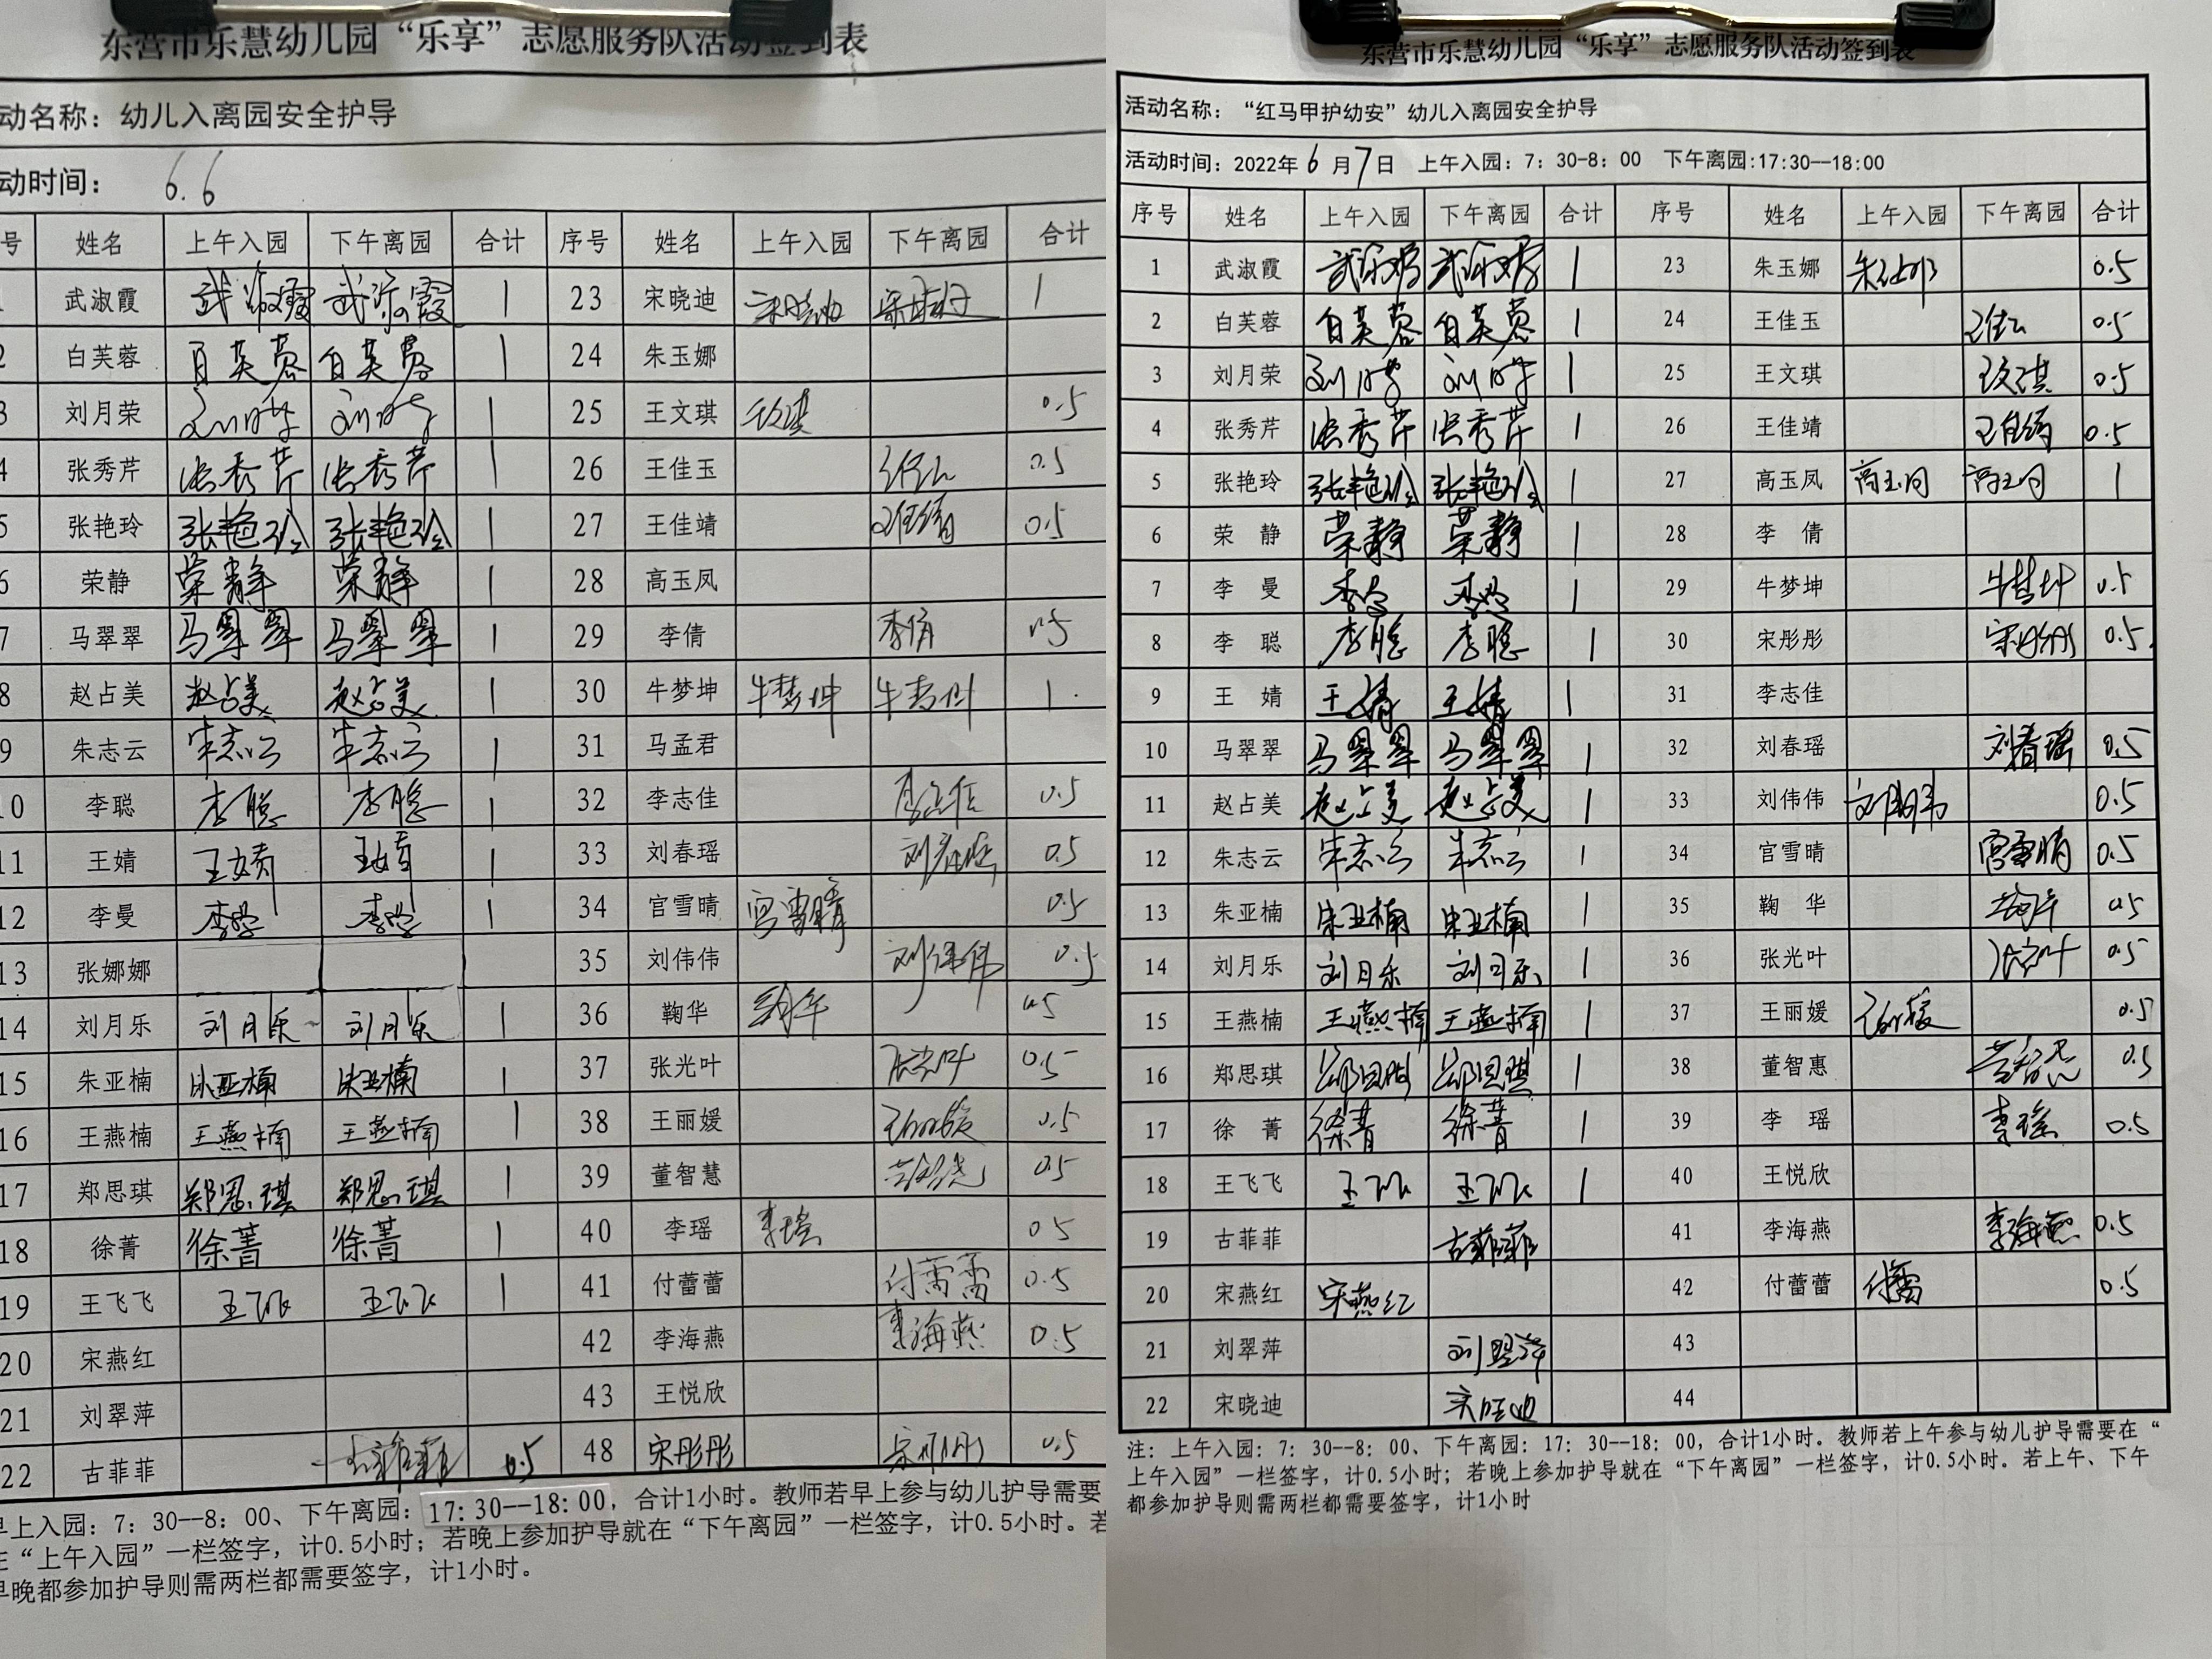 东营市乐慧幼儿园“乐享”志愿服务队活动签到表
动名称：幼儿入离园安全护导
动时间： 6.6
号 姓名 上午入园 下午离园 合计 序号 姓名 上午入园 下午离园 合计
1 武淑霞 武淑霞 武淑霞 1 23 宋晓迪 宋晓迪 宋晓迪 1
2 白芙蓉 白芙蓉 白芙蓉 1 24 朱玉娜
3 刘月荣 刘月荣 刘月荣 1 25 王文琪 王文琪 0.5
4 张秀芹 张秀芹 张秀芹 1 26 王佳玉 王佳玉 0.5
5 张艳玲 张艳玲 张艳玲 1 27 王佳靖 王佳靖 0.5
6 荣静 荣静 荣静 1 28 高玉凤
7 马翠翠 马翠翠 马翠翠 1 29 李倩 李倩 0.5
8 赵占美 赵占美 赵占美 1 30 牛梦坤 牛梦坤 牛梦坤 1
9 朱志云 朱志云 朱志云 1 31 马孟君
10 李聪 李聪 李聪 1 32 李志佳 李志佳 0.5
11 王婧 王婧 王婧 1 33 刘春瑶 刘春瑶 0.5
12 李曼 李曼 李曼 1 34 官雪晴 官雪晴 0.5
13 张娜娜 35 刘伟伟 刘伟伟 0.5
14 刘月乐 刘月乐 刘月乐 1 36 鞠华 鞠华 0.5
15 朱亚楠 朱亚楠 朱亚楠 1 37 张光叶 张光叶 0.5
16 王燕楠 王燕楠 王燕楠 1 38 王丽媛 王丽媛 0.5
17 郑思琪 郑思琪 郑思琪 1 39 董智慧 董智慧 0.5
18 徐菁 徐菁 徐菁 1 40 李瑶 李瑶 0.5
19 王飞飞 王飞飞 王飞飞 1 41 付蕾蕾 付蕾蕾 0.5
20 宋燕红 42 李海燕 李海燕 0.5
21 刘翠萍 43 王悦欣
22 古菲菲 古菲菲 0.5 48 宋彤彤 宋彤彤 0.5
早上入园：7：30--8：00、下午离园：17：30--18：00，合计1小时。教师若早上参与幼儿护导需要
在“上午入园”一栏签字，计0.5小时；若晚上参加护导就在“下午离园”一栏签字，计0.5小时。若
早晚都参加护导则需两栏都需要签字，计1小时。
东营市乐慧幼儿园“乐享”志愿服务队活动签到表
活动名称：“红马甲护幼安”幼儿入离园安全护导
活动时间：2022年6月7日 上午入园：7：30-8：00 下午离园:17:30--18:00
序号 姓名 上午入园 下午离园 合计 序号 姓名 上午入园 下午离园 合计
1 武淑霞 武淑霞 武淑霞 1 23 朱玉娜 朱玉娜 0.5
2 白芙蓉 白芙蓉 白芙蓉 1 24 王佳玉 王佳玉 0.5
3 刘月荣 刘月荣 刘月荣 1 25 王文琪 王文琪 0.5
4 张秀芹 张秀芹 张秀芹 1 26 王佳靖 王佳靖 0.5
5 张艳玲 张艳玲 张艳玲 1 27 高玉凤 高玉凤 高玉凤 1
6 荣 静 荣静 荣静 1 28 李 倩
7 李 曼 李曼 李曼 1 29 牛梦坤 牛梦坤 0.5
8 李 聪 李聪 李聪 1 30 宋彤彤 宋彤彤 0.5
9 王 婧 王婧 王婧 1 31 李志佳
10 马翠翠 马翠翠 马翠翠 1 32 刘春瑶 刘春瑶 0.5
11 赵占美 赵占美 赵占美 1 33 刘伟伟 刘伟伟 0.5
12 朱志云 朱志云 朱志云 1 34 官雪晴 官雪晴 0.5
13 朱亚楠 朱亚楠 朱亚楠 1 35 鞠 华 鞠华 0.5
14 刘月乐 刘月乐 刘月乐 1 36 张光叶 张光叶 0.5
15 王燕楠 王燕楠 王燕楠 1 37 王丽媛 王丽媛 0.5
16 郑思琪 郑思琪 郑思琪 1 38 董智惠 董智惠 0.5
17 徐 菁 徐菁 徐菁 1 39 李 瑶 李瑶 0.5
18 王飞飞 王飞飞 王飞飞 1 40 王悦欣
19 古菲菲 古菲菲 41 李海燕 李海燕 0.5
20 宋燕红 宋燕红 42 付蕾蕾 付蕾 0.5
21 刘翠萍 刘翠萍 43
22 宋晓迪 宋晓迪 44
注：上午入园：7：30--8：00、下午离园：17：30--18：00，合计1小时。教师若上午参与幼儿护导需要在“
上午入园”一栏签字，计0.5小时；若晚上参加护导就在“下午离园”一栏签字，计0.5小时。若上午、下午
都参加护导则需两栏都需要签字，计1小时